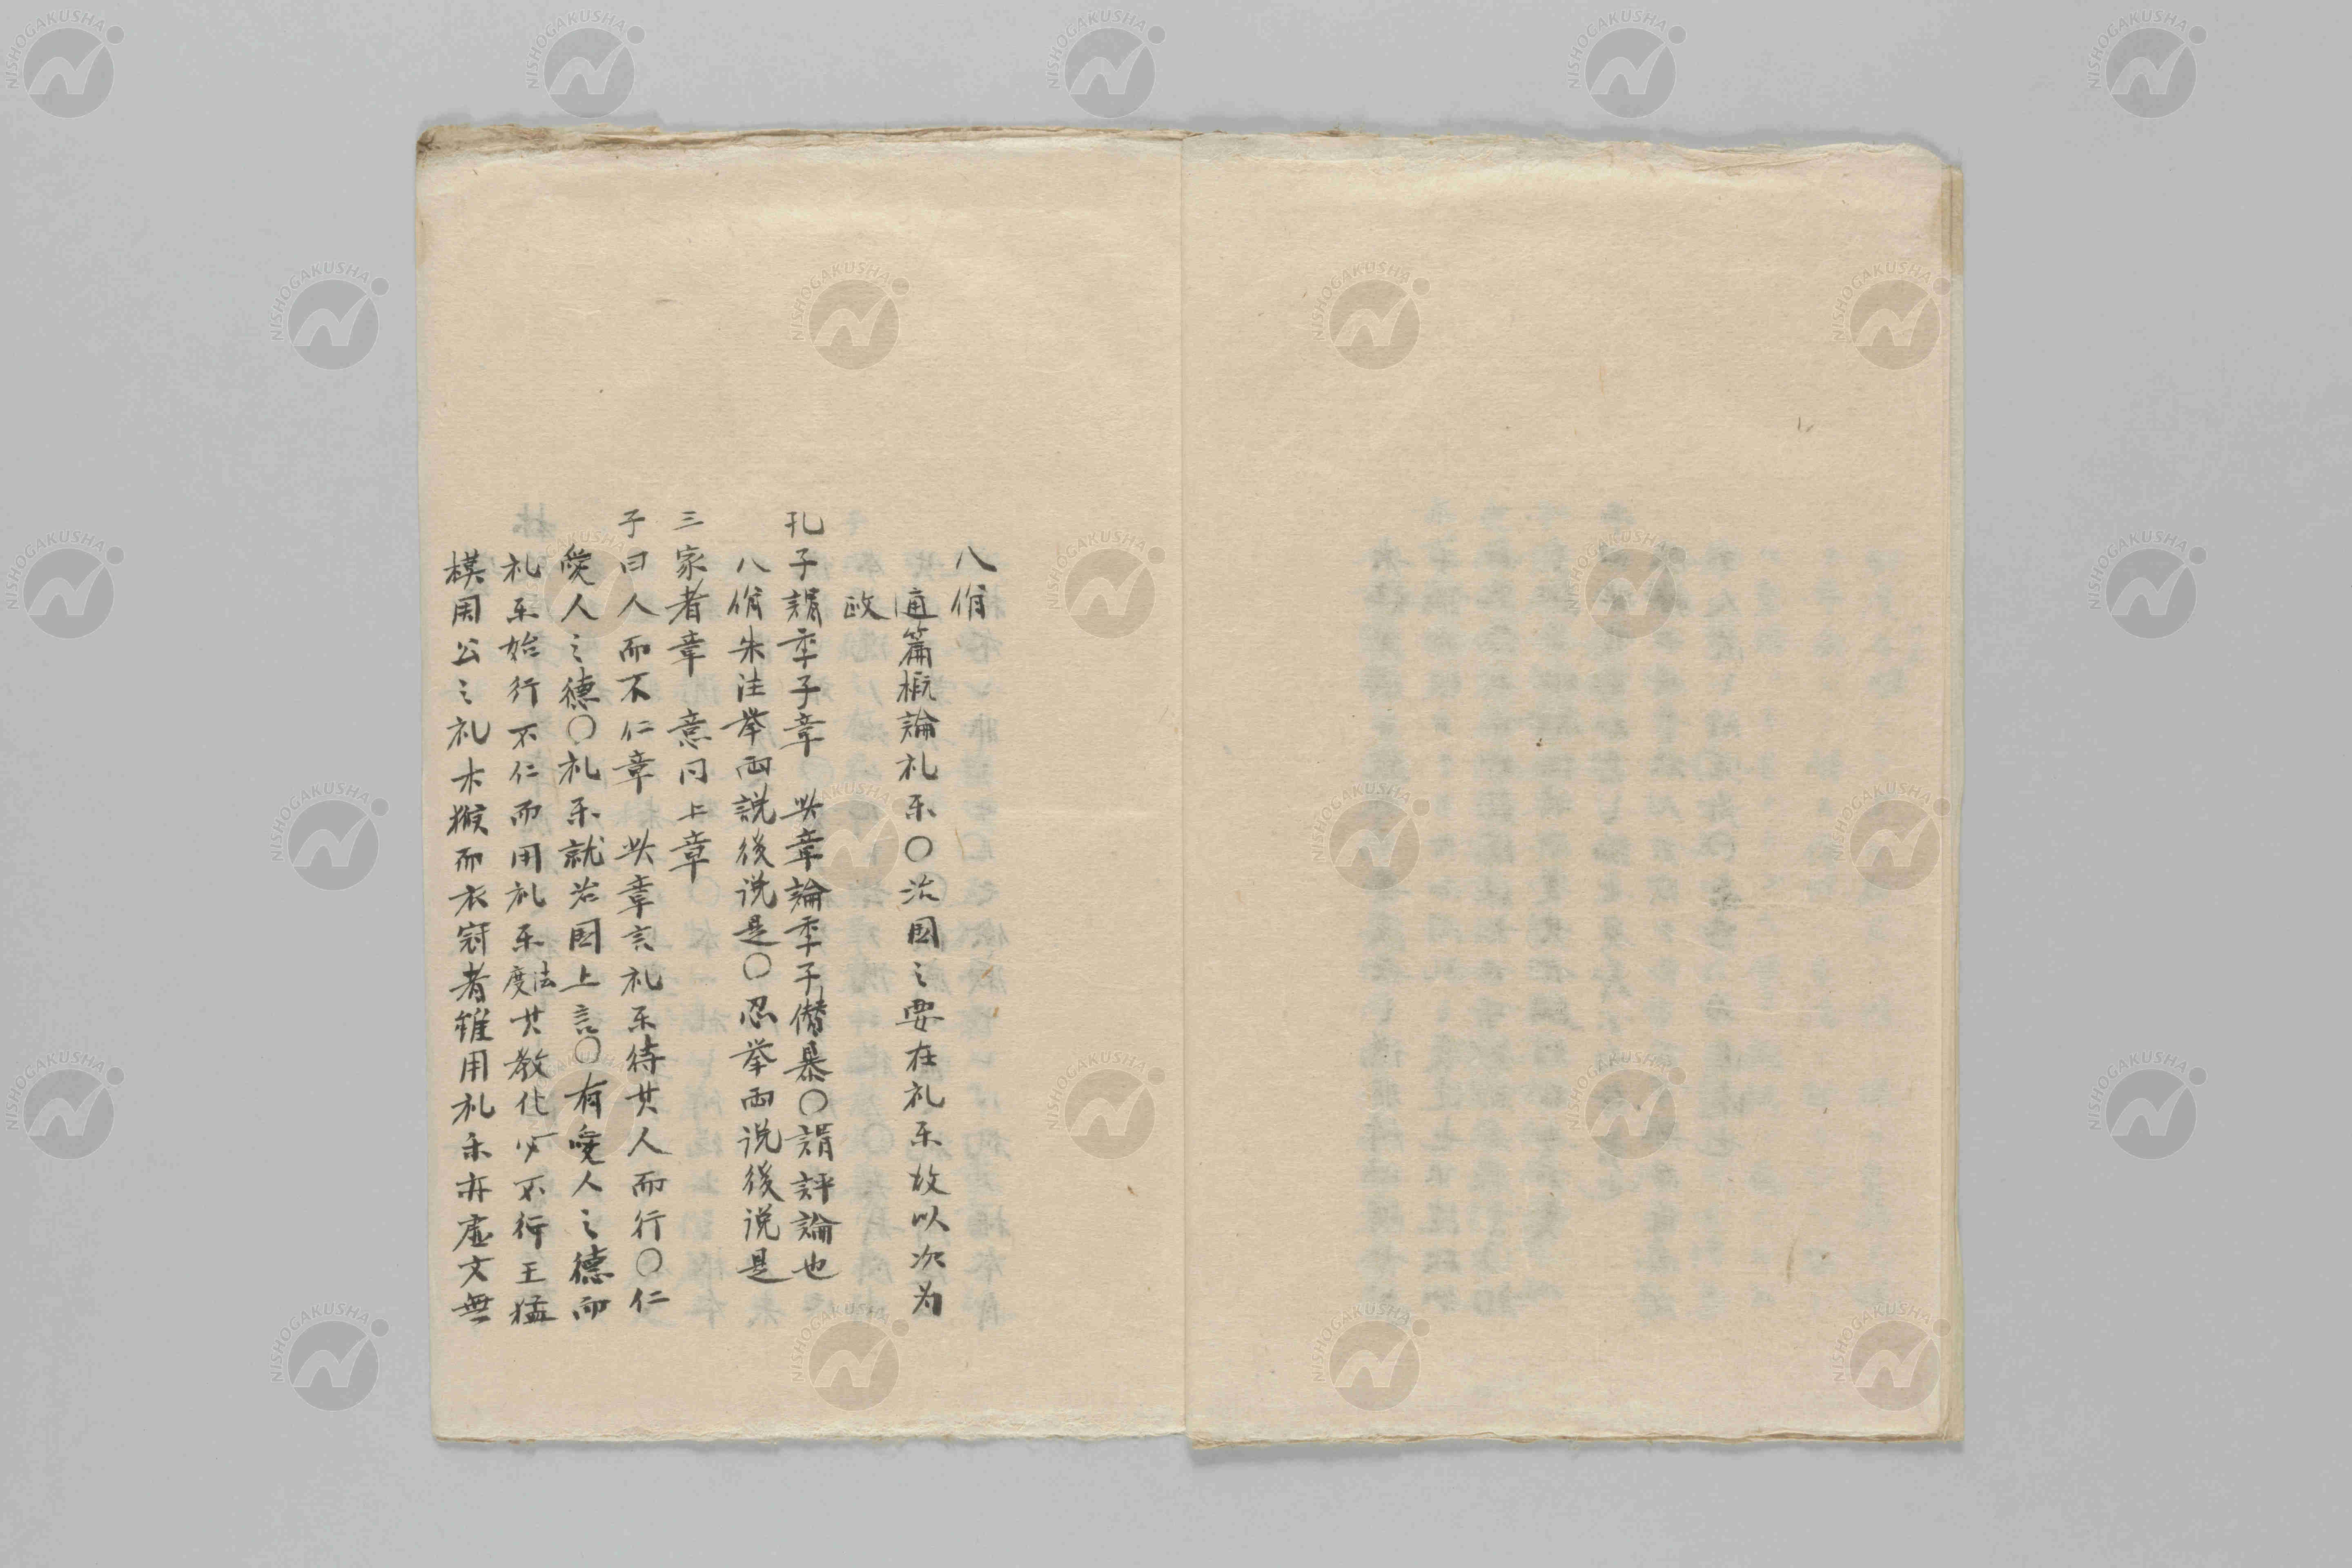 八佾
通篇概論礼乐〇治国之要在礼乐故以次为
政
孔子謂季子章 此章論季子僭暴〇謂評論也
八佾朱注挙両説後说是〇忍挙両说後说是
三家者章 意同上章
子曰人而不仁章 此章言礼乐待其人而行〇仁
愛人之德〇礼乐就治国上言〇有愛人之德而
礼乐始行不仁而用礼乐法度其教化必不行王猛
模周公之礼木猴而衣冠者雖用礼乐亦虚文無
NISHOGAKUSHA